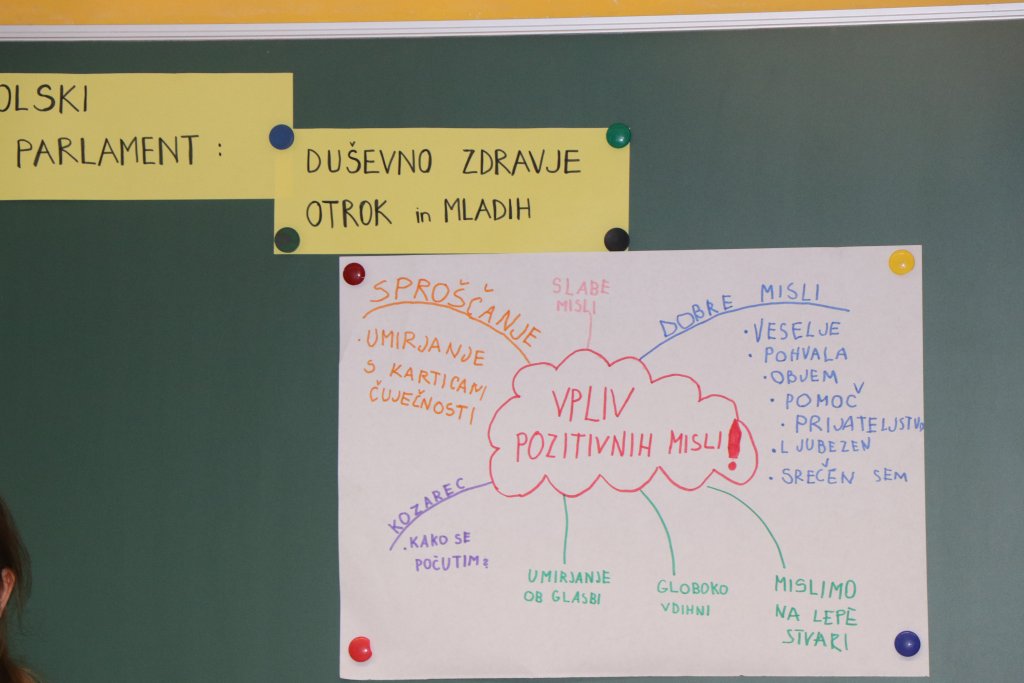 OLSKI
PARLAMENT :
DUŠEVNO ZDRAVJE
OTROK in MLADIH
SPROŠČANJE
· UMIRJANJE
S KARTICAMI
ČUJEČNOSTI
SLABE
MISLI
DOBRE MISLI
· VESELJE
· POHVALA
· OBJEM
· POMOČ
· PRIJATELJSTVO
· LJUBEZEN
· SREČEN SEM
VPLIV
POZITIVNIH MISLI!
KOZAREC
· KAKO SE
POČUTIM?
UMIRJANJE
OB GLASBI
GLOBOKO
VDIHNI
MISLIMO
NA LEPE
STVARI